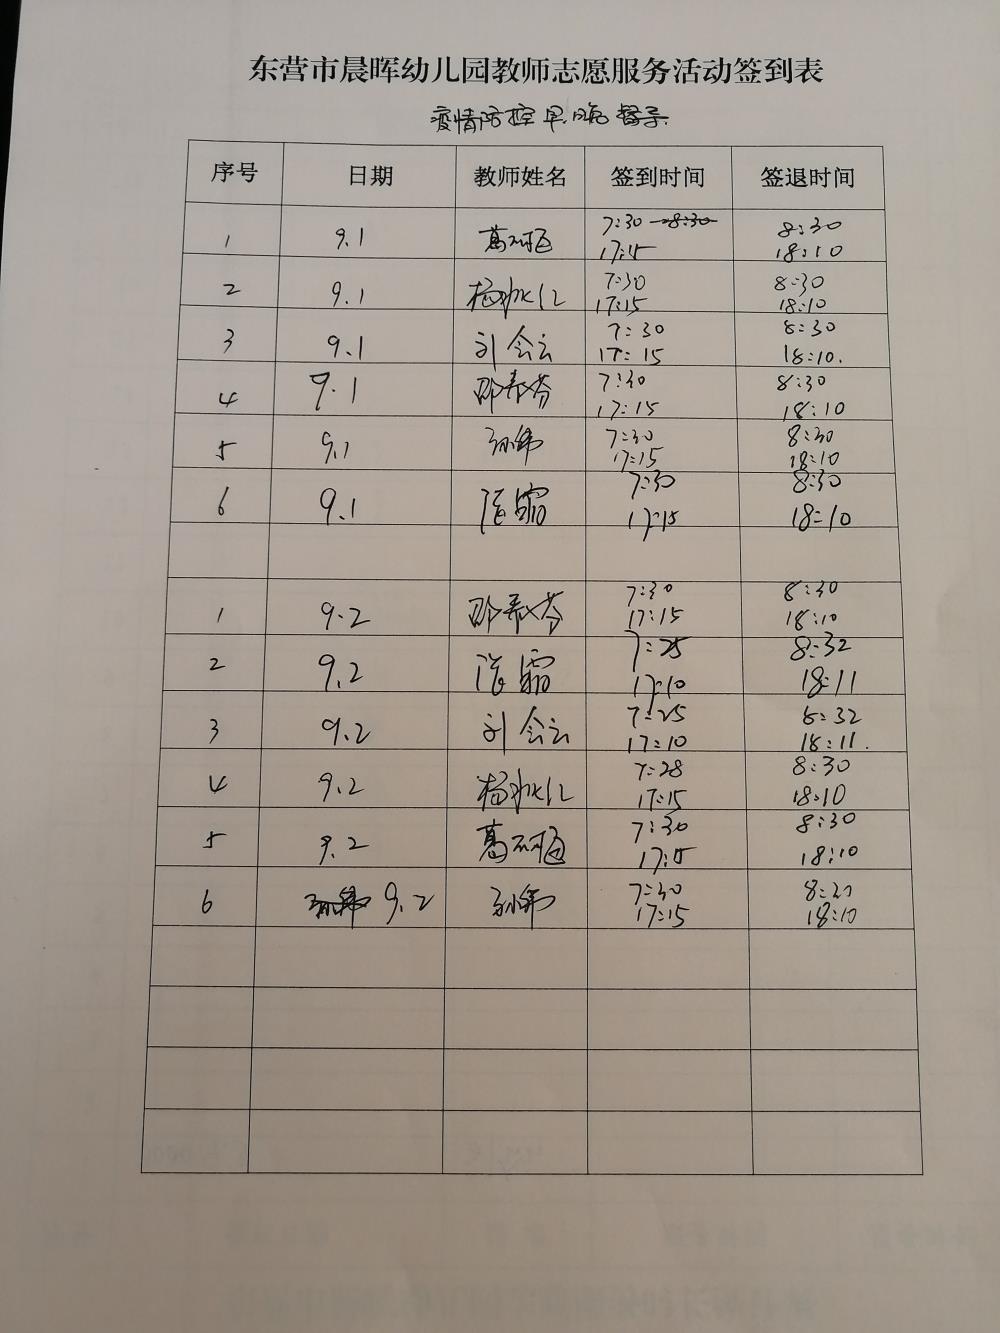 东营市晨晖幼儿园教师志愿服务活动签到表
疫情防控早.晚督导.
序号 日期 教师姓名 签到时间 签退时间
1 9.1 7:30 8:30
17:15 18:10
2 9.1 7:30 8:30
17:15 18:10
3 9.1 刘会云 7:30 8:30
17:15 18:10.
4 9.1 邵春芬 7:30 8:30
17:15 18:10
5 9.1 孙伟 7:30 8:30
17:15 18:10
6 9.1 7:30 8:30
17:15 18:10
1 9.2 邵春芬 7:30 8:30
17:15 18:10
2 9.2 7:25 8:32
17:10 18:11
3 9.2 刘会云 7:25 8:32
17:10 18:11.
4 9.2 7:28 8:30
17:15 18:10
5 9.2 7:30 8:30
17:15 18:10
6 9.2 孙伟 7:30
17:15 18:10